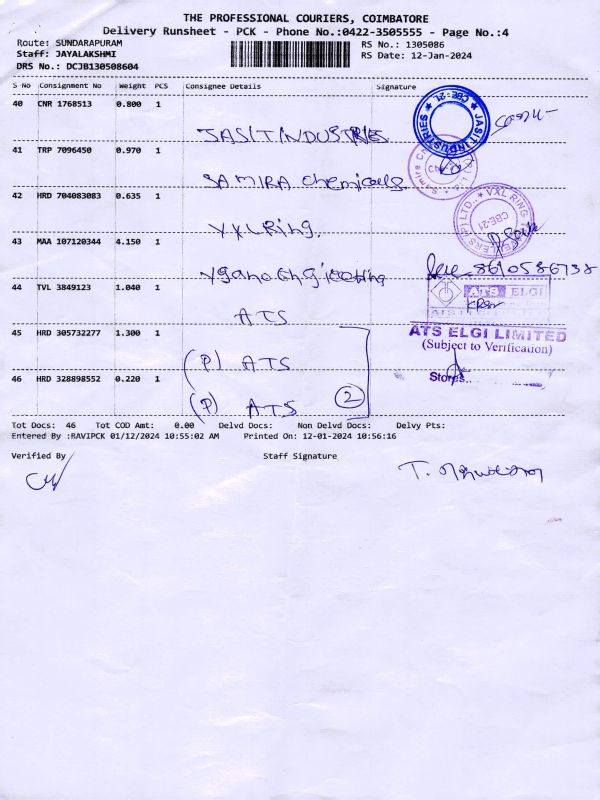 THE PROFESSIONAL COURIERS, COIMBATORE
Delivery Runsheet - PCK - Phone No.:0422-3505555 - Page No.:4
Route: SUNDARAPURAM
Staff: JAYALAKSHMI
DRS No.: DCJB130508604
RS No.: 1305086
RS Date: 12-Jan-2024
S No Consignment No Weight PCS Consignee Details Signature
40 CNR 1768513 0.800 1
JASIT INDUSTRIES
JASIT INDUSTRIES CBE-21
41 TRP 7096450 0.970 1
SAMIRA Chemicals
42 HRD 704083083 0.635 1
VXL Ring.
VXL RING CBE-21
43 MAA 107120344 4.150 1
8610586738
44 TVL 3849123 1.040 1
ATS
ATS ELGI
45 HRD 305732277 1.300 1
(P) ATS
ATS ELGI LIMITED
(Subject to Verification)
46 HRD 328898552 0.220 1
(P) ATS
2
Stores.
Tot Docs: 46 Tot COD Amt: 0.00 Delvd Docs: Non Delvd Docs: Delvy Pts:
Entered By :RAVIPCK 01/12/2024 10:55:02 AM Printed On: 12-01-2024 10:56:16
Verified By Staff Signature